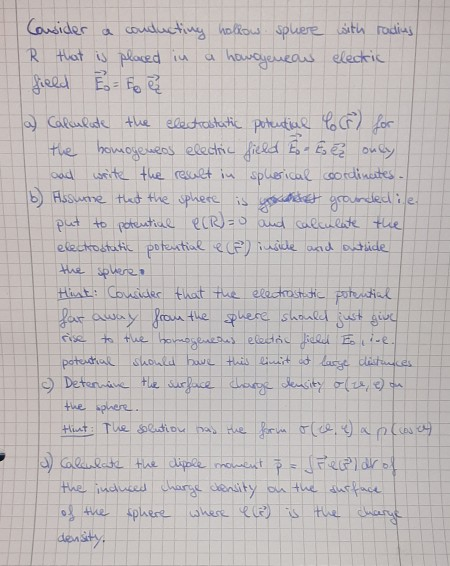 Consider a conducting hollow sphere with radius
R that is placed in a homogeneous electric
field E⃗₀ = E₀ e⃗z
a) Calculate the electrostatic potential φ₀(r⃗) for
the homogeneous electric field E⃗₀ = E₀ e⃗z only
and write the result in spherical coordinates.
b) Assume that the sphere is grounded i.e.
put to potential φ(R) = 0 and calculate the
electrostatic potential φ(r⃗) inside and outside
the sphere.
Hint: Consider that the electrostatic potential
far away from the sphere should just give
rise to the homogeneous electric field E₀, i.e.
potential should have this limit at large distances
c) Determine the surface charge density σ(ϑ, φ) on
the sphere.
Hint: The solution has the form σ(ϑ, φ) ∝ p(cos ϑ)
d) Calculate the dipole moment p⃗ = ∫ r⃗ ρ(r⃗) dV of
the induced charge density on the surface
of the sphere where ρ(r⃗) is the charge
density.